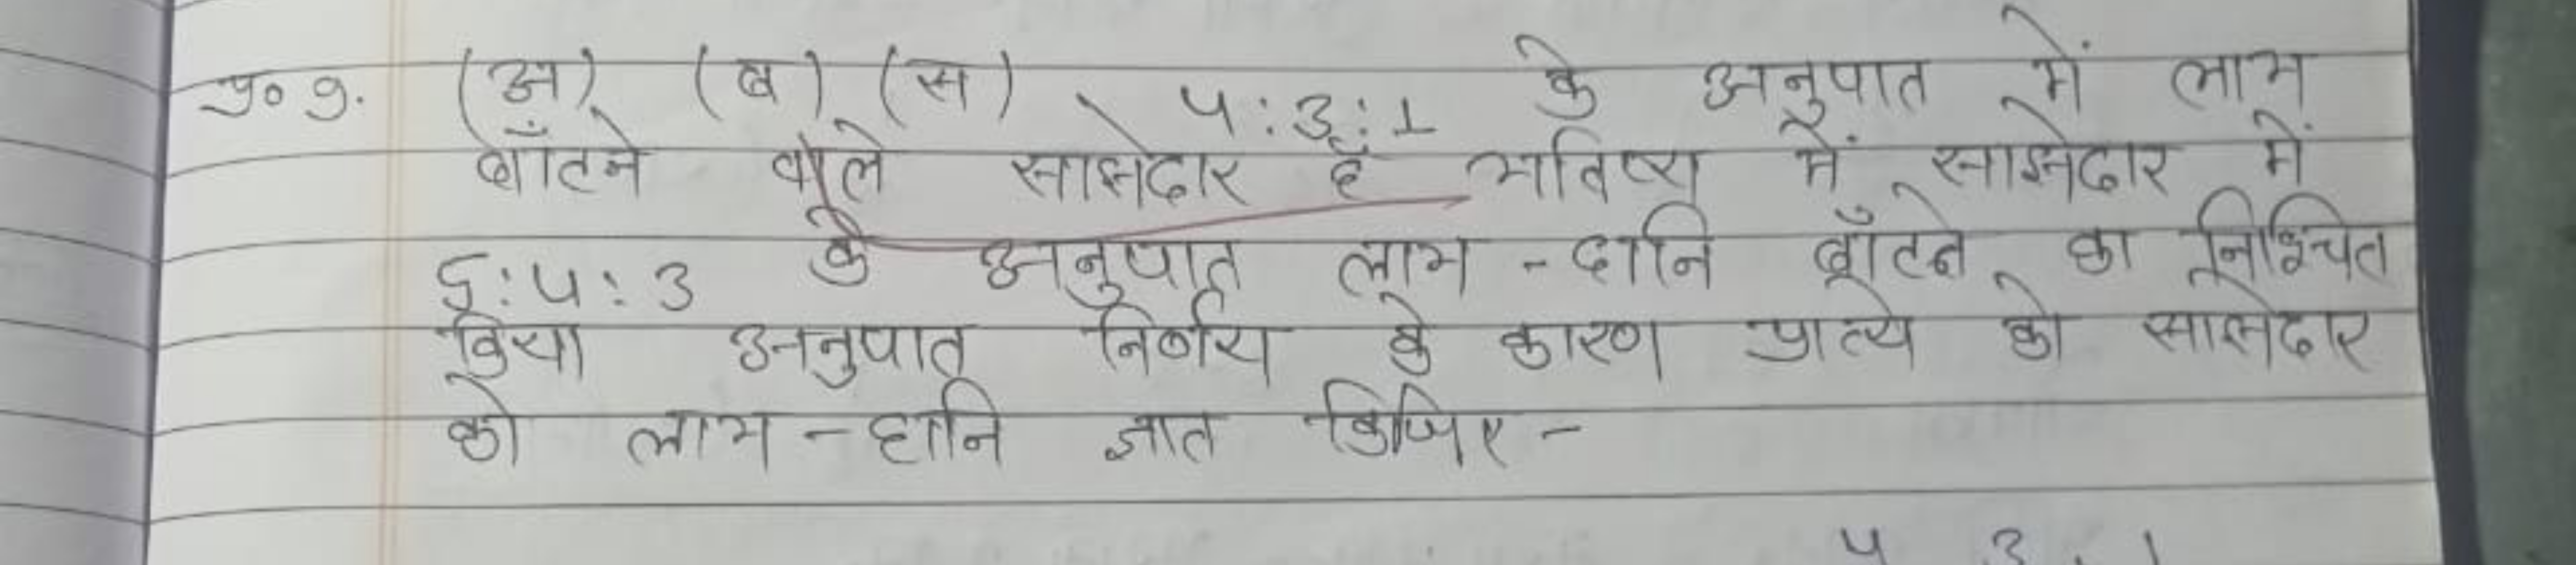 प्र० 9. (अ) (ब) (स) 4:3:1 के अनुपात में लाभ
बाँटने वाले साझेदार हैं भविष्य में साझेदार में
5:4:3 के अनुपात लाभ - हानि बाँटने का निश्चित
किया अनुपात निर्णय के कारण प्रात्ये को साझेदार
को लाभ - हानि ज्ञात किजिए -
4 3 . 1